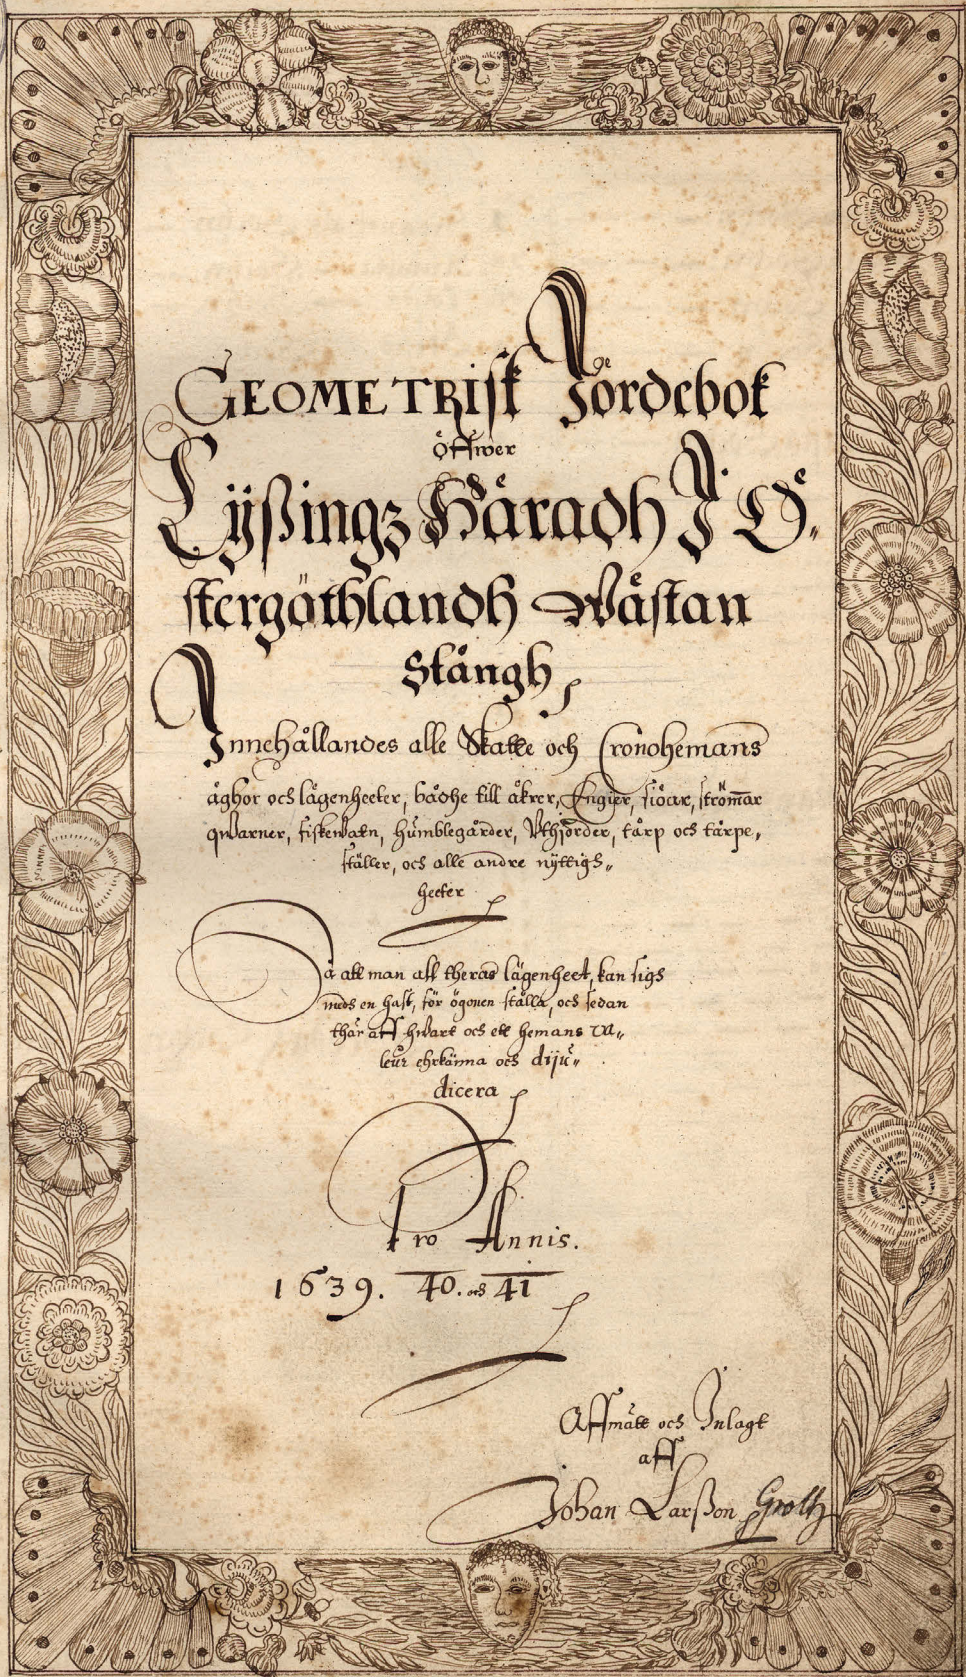 GEOMETRisk Jordebok
öffwer
Lÿßingz Häradh J Ö-
stergöthlandh Wästan
Stångh
Innehållandes alle Skatte och Cronohemans
äghor och lägenheeter, bådhe till åkrer, Engier, siöar, strömar
qwarner, fiskewatn, humblegårder, Uthjorder, tårp och tårpe„
ställer, och alle andre nÿttigh„
heeter
Så att man aff theras lägenheet, kan sigh
medh en hast, för ögonen ställa, och sedan
thär aff hwart och ett hemans va„
leur ehrkänna och diju„
dicera
Pro Annis.
1639. 40. och 41
Affmätt och Inlagt
aff
Johan Larßon Groth